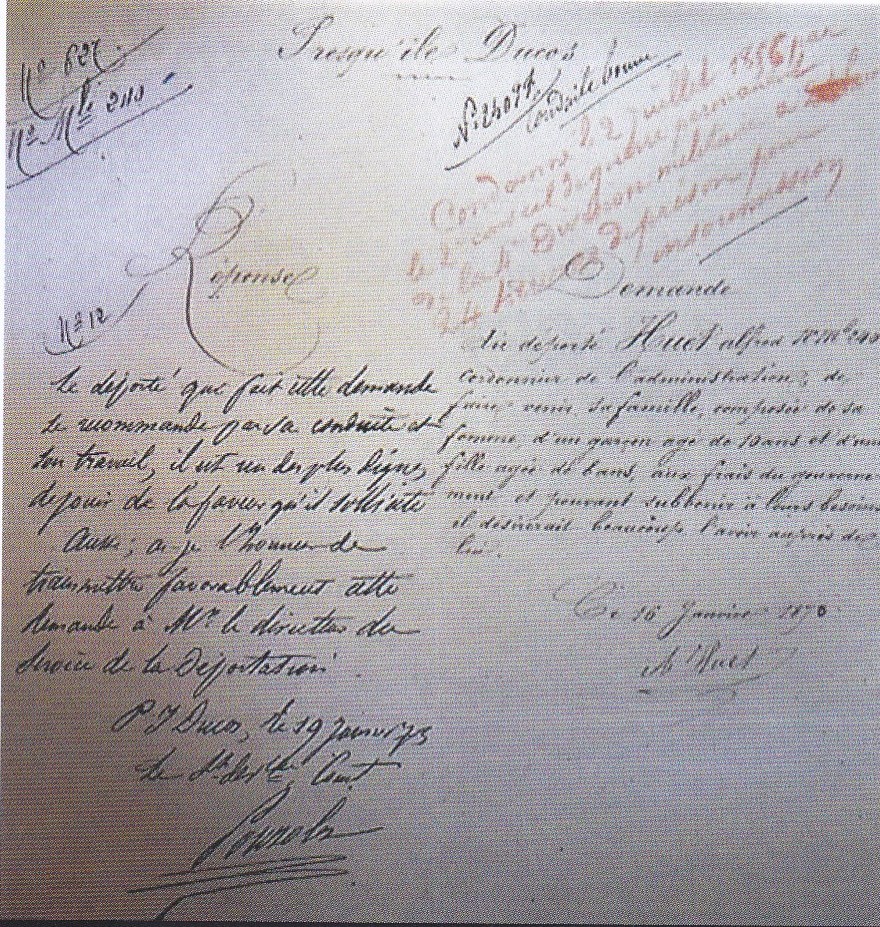 Presqu'île Ducos
N° 627.
N° Mle 240
conduite bonne
Condamné le 2 juillet 1856 par
le 2e conseil de guerre permanent
de la 4e Division militaire à
24 heures de prison pour
insoumission
Réponse
N° 12
le déporté que fait cette demande
se recommande par sa conduite et
son travail, il est un des plus dignes
de jouir de la faveur qu'il sollicite
Aussi; ai-je l'honneur de
transmettre favorablement cette
demande à Mr le directeur du
Service de la Déportation
P. I Ducos, le 19 janvier 73
le
Demande
Du déporté Huet alfred n° mle 240
cordonnier de l'administration, de
faire venir sa famille, composée de sa
femme, d'un garçon agé de 10 ans et d'une
fille agée de 6 ans, aux frais du gouverne
ment et pouvant subvenir à leurs besoins
il désirerait beaucoup l'avoir auprès de
lui.
Ce 16 Janvier 187
A Huet